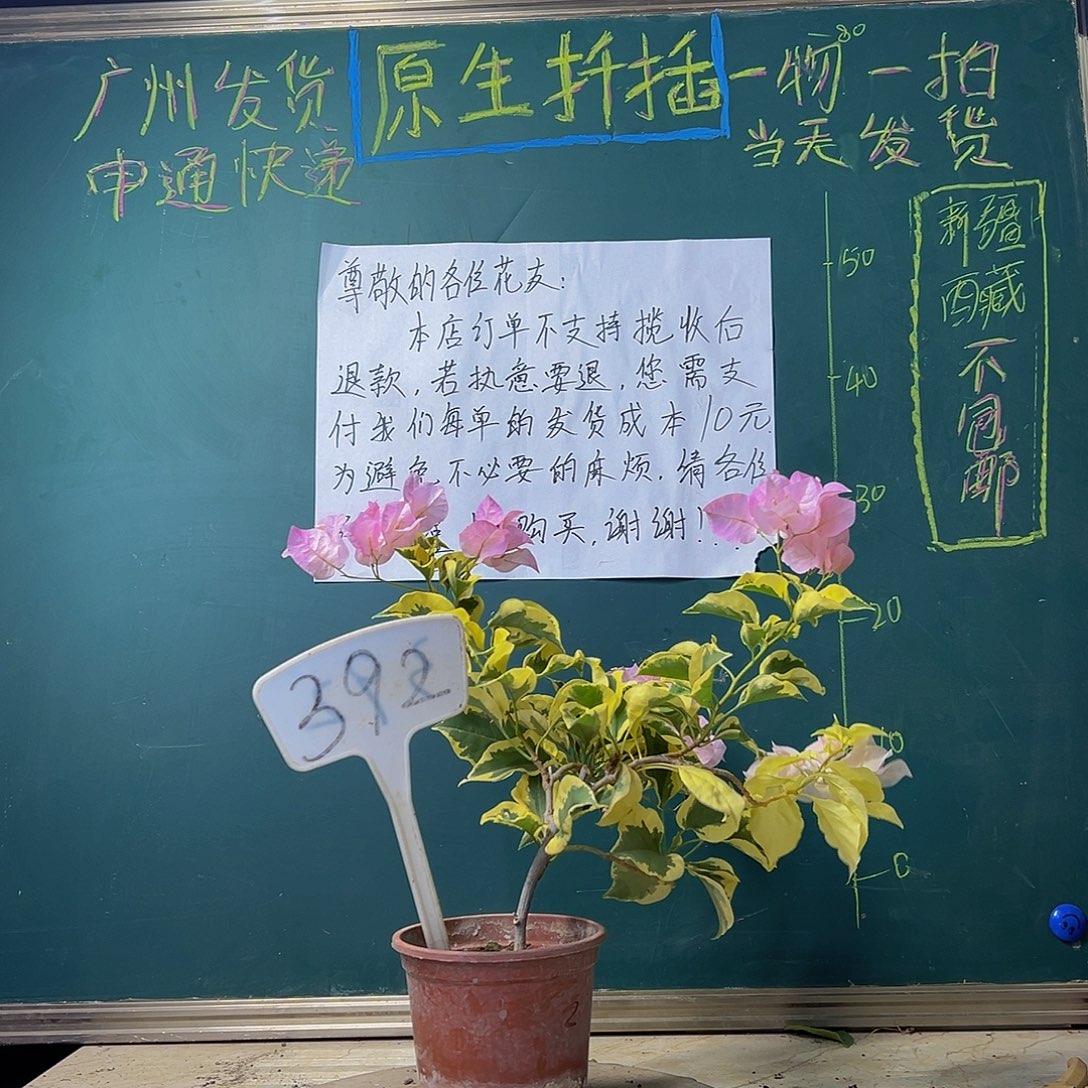 广州发货
申通快递
原生扦插
一物一拍
当天发货
新疆
西藏
不包邮
尊敬的各位花友:
本店订单不支持揽收后
退款,若执意要退,您需支
付我们每单的发货成本10元.
为避免不必要的麻烦.请各位
购买,谢谢!
50
40
30
20
10
0
392
2